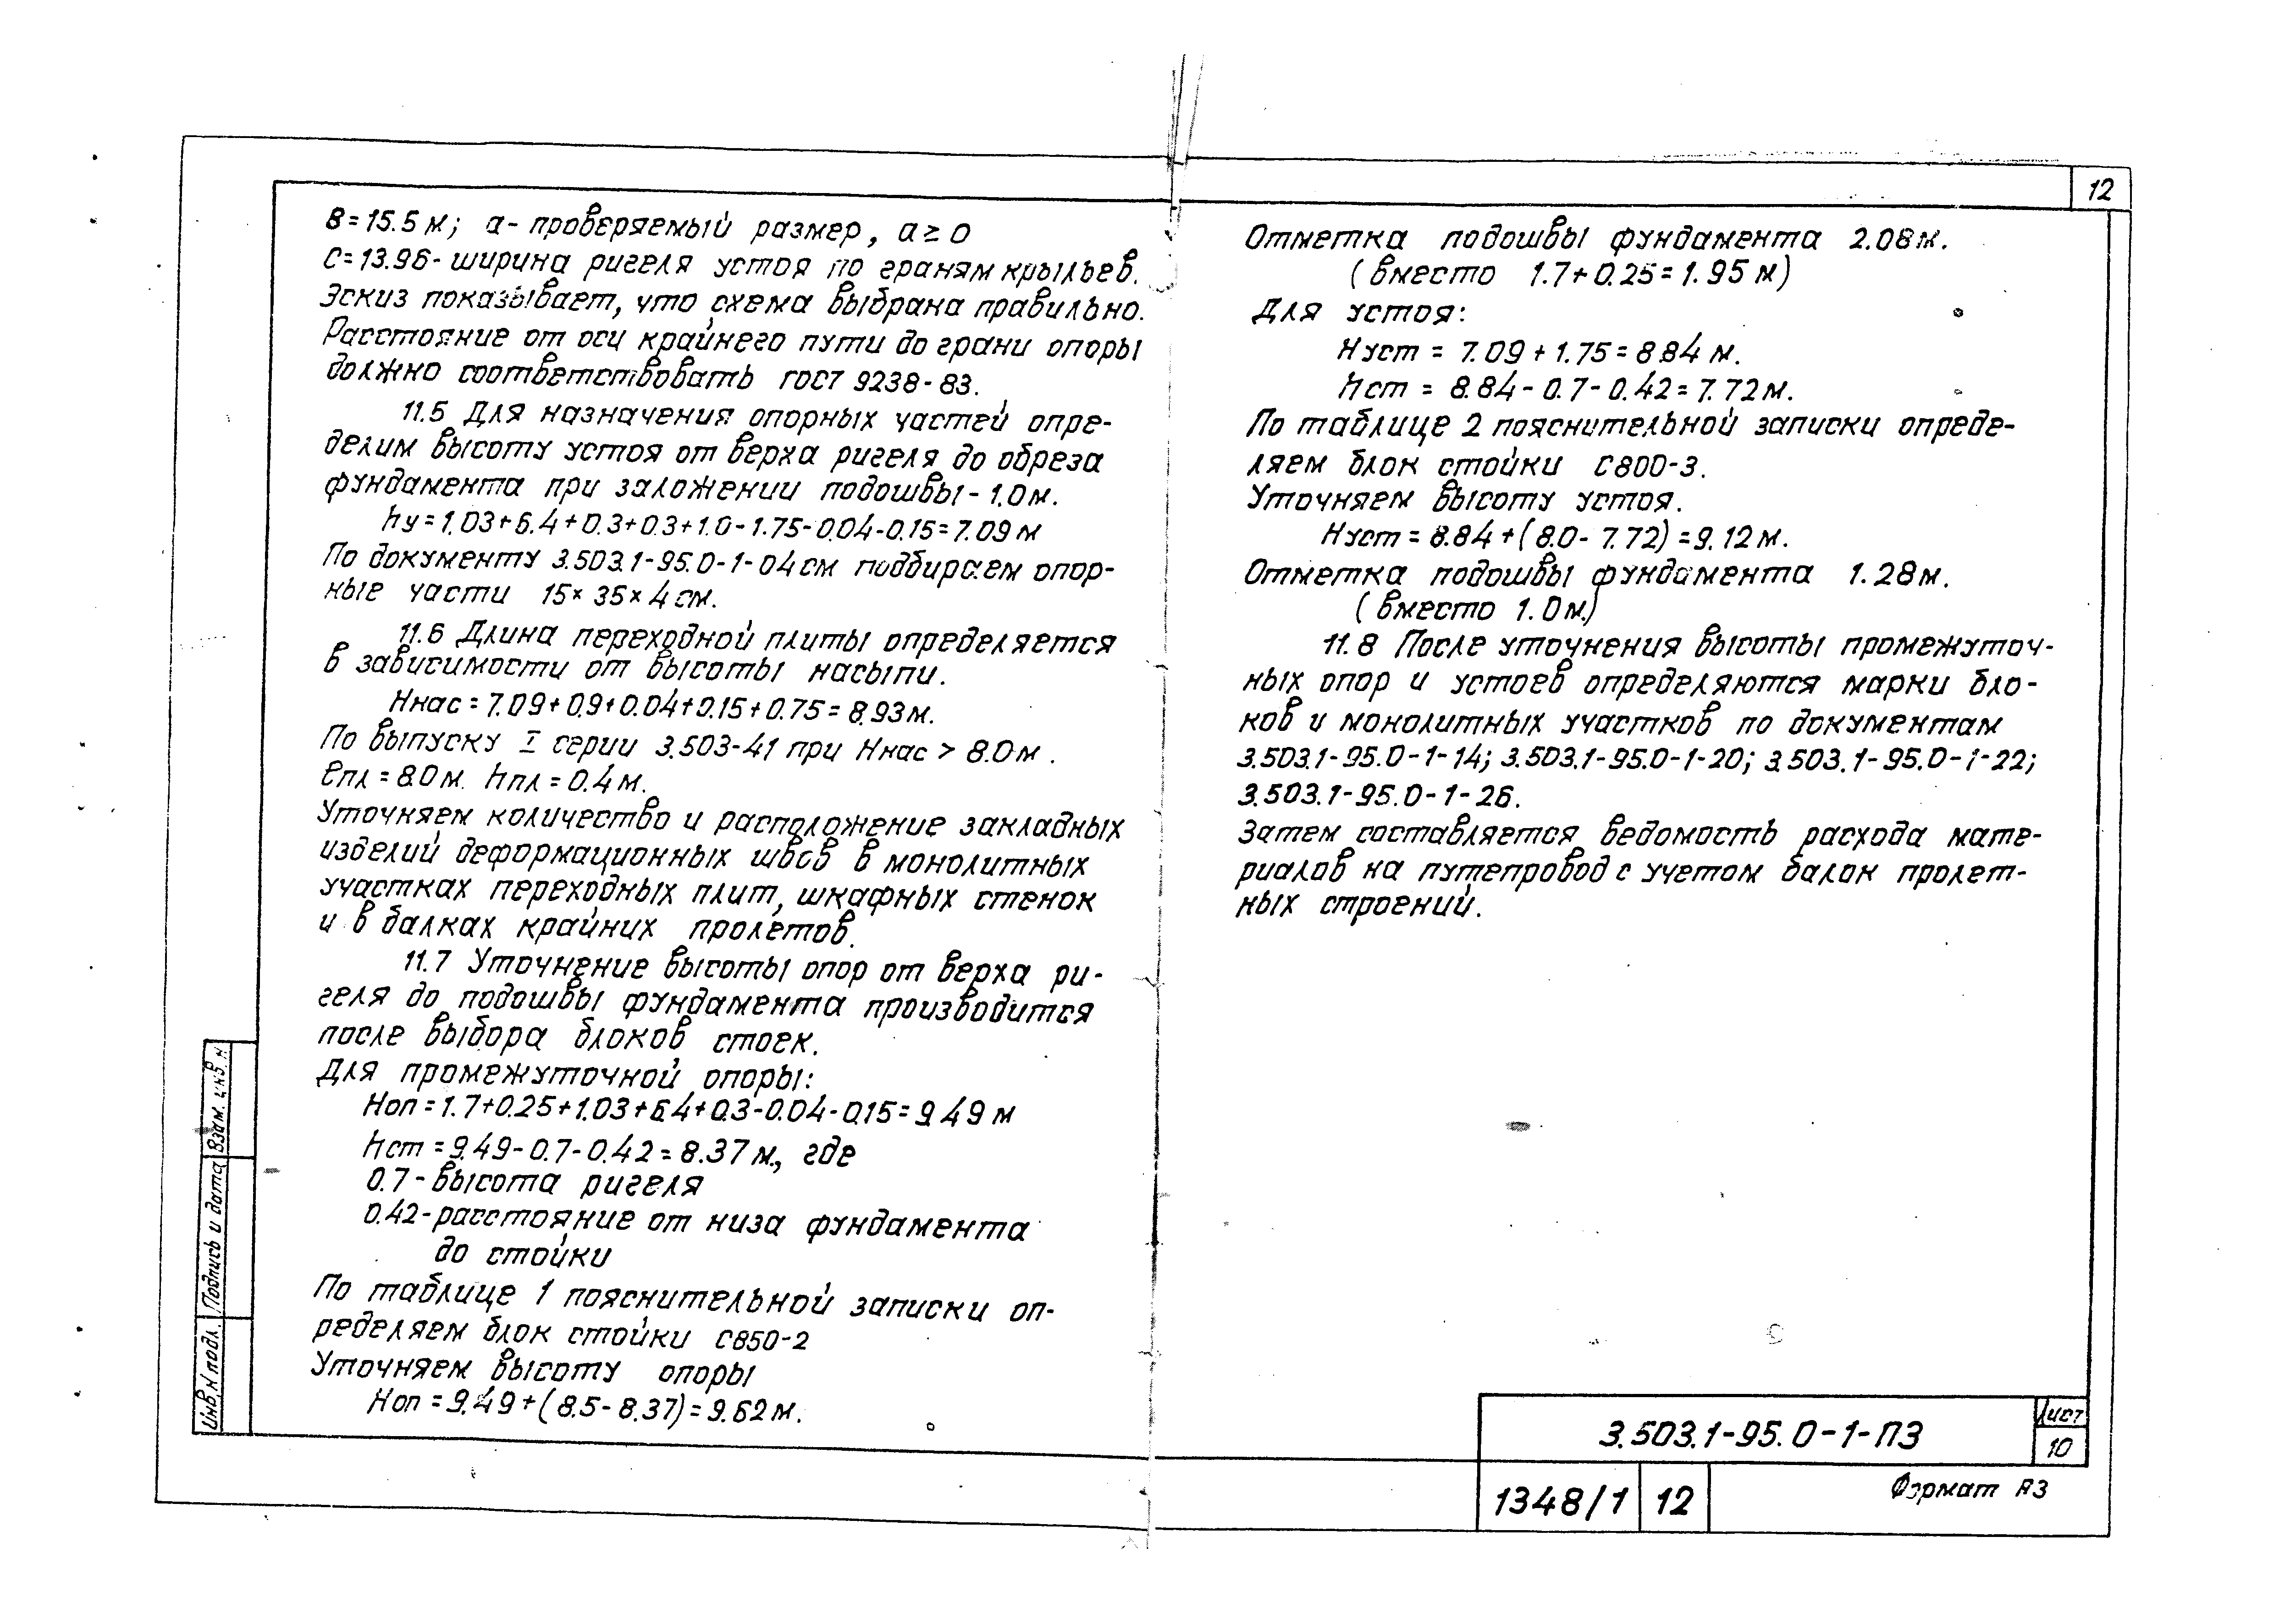 12
В=15.5м; а- проверяемый размер, а ≥ 0
С=13.96- ширина ригеля устоя по граням крыльев.
Эскиз показывает, что схема выбрана правильно.
Расстояние от оси крайнего пути до грани опоры
должно соответствовать ГОСТ 9238-83.
11.5 Для назначения опорных частей опре-
делим высоту устоя от верха ригеля до обреза
фундамента при заложении подошвы-1.0м.
hу=1.03+6.4+0.3+0.3+1.0-1.75-0.04-0.15=7.09м
По документу 3.503.1-95.0-1-04см подбираем опор-
ные части 15×35×4см.
11.6 Длина переходной плиты определяется
в зависимости от высоты насыпи.
Ннас=7.09+0.9+0.04+0.15+0.75=8.93м.
По выпуску I серии 3.503-41 при Ннас > 8.0м.
ℓпл=8.0м. hпл=0.4м.
Уточняем количество и расположение закладных
изделий деформационных швов в монолитных
участках переходных плит, шкафных стенок
и в балках крайних пролетов.
11.7 Уточнение высоты опор от верха ри-
геля до подошвы фундамента производится
после выбора блоков стоек.
Для промежуточной опоры:
Ноп=1.7+0.25+1.03+6.4+0.3-0.04-0.15=9.49м
hст=9.49-0.7-0.42=8.37м, где
0.7-высота ригеля
0.42-расстояние от низа фундамента
до стойки
По таблице 1 пояснительной записки оп-
ределяем блок стойки С850-2
Уточняем высоту опоры
Ноп=9.49+(8.5-8.37)=9.62м.
Отметка подошвы фундамента 2.08м.
(вместо 1.7+0.25=1.95м)
Для устоя:
Нуст = 7.09+1.75=8.84м.
hст = 8.84-0.7-0.42=7.72м.
По таблице 2 пояснительной записки опреде-
ляем блок стойки С800-3.
Уточняем высоту устоя.
Нуст=8.84+(8.0-7.72)=9.12м.
Отметка подошвы фундамента 1.28м.
(вместо 1.0м.)
11.8 После уточнения высоты промежуточ-
ных опор и устоев определяются марки бло-
ков и монолитных участков по документам
3.503.1-95.0-1-14; 3.503.1-95.0-1-20; 3.503.1-95.0-1-22;
3.503.1-95.0-1-26.
Затем составляется ведомость расхода мате-
риалов на путепровод с учетом балок пролет-
ных строений.
Взам. инв. N
Подпись и дата
Инв. N подл.
3.503.1-95.0-1-ПЗ
Лист
10
1348/1
12
Формат А3